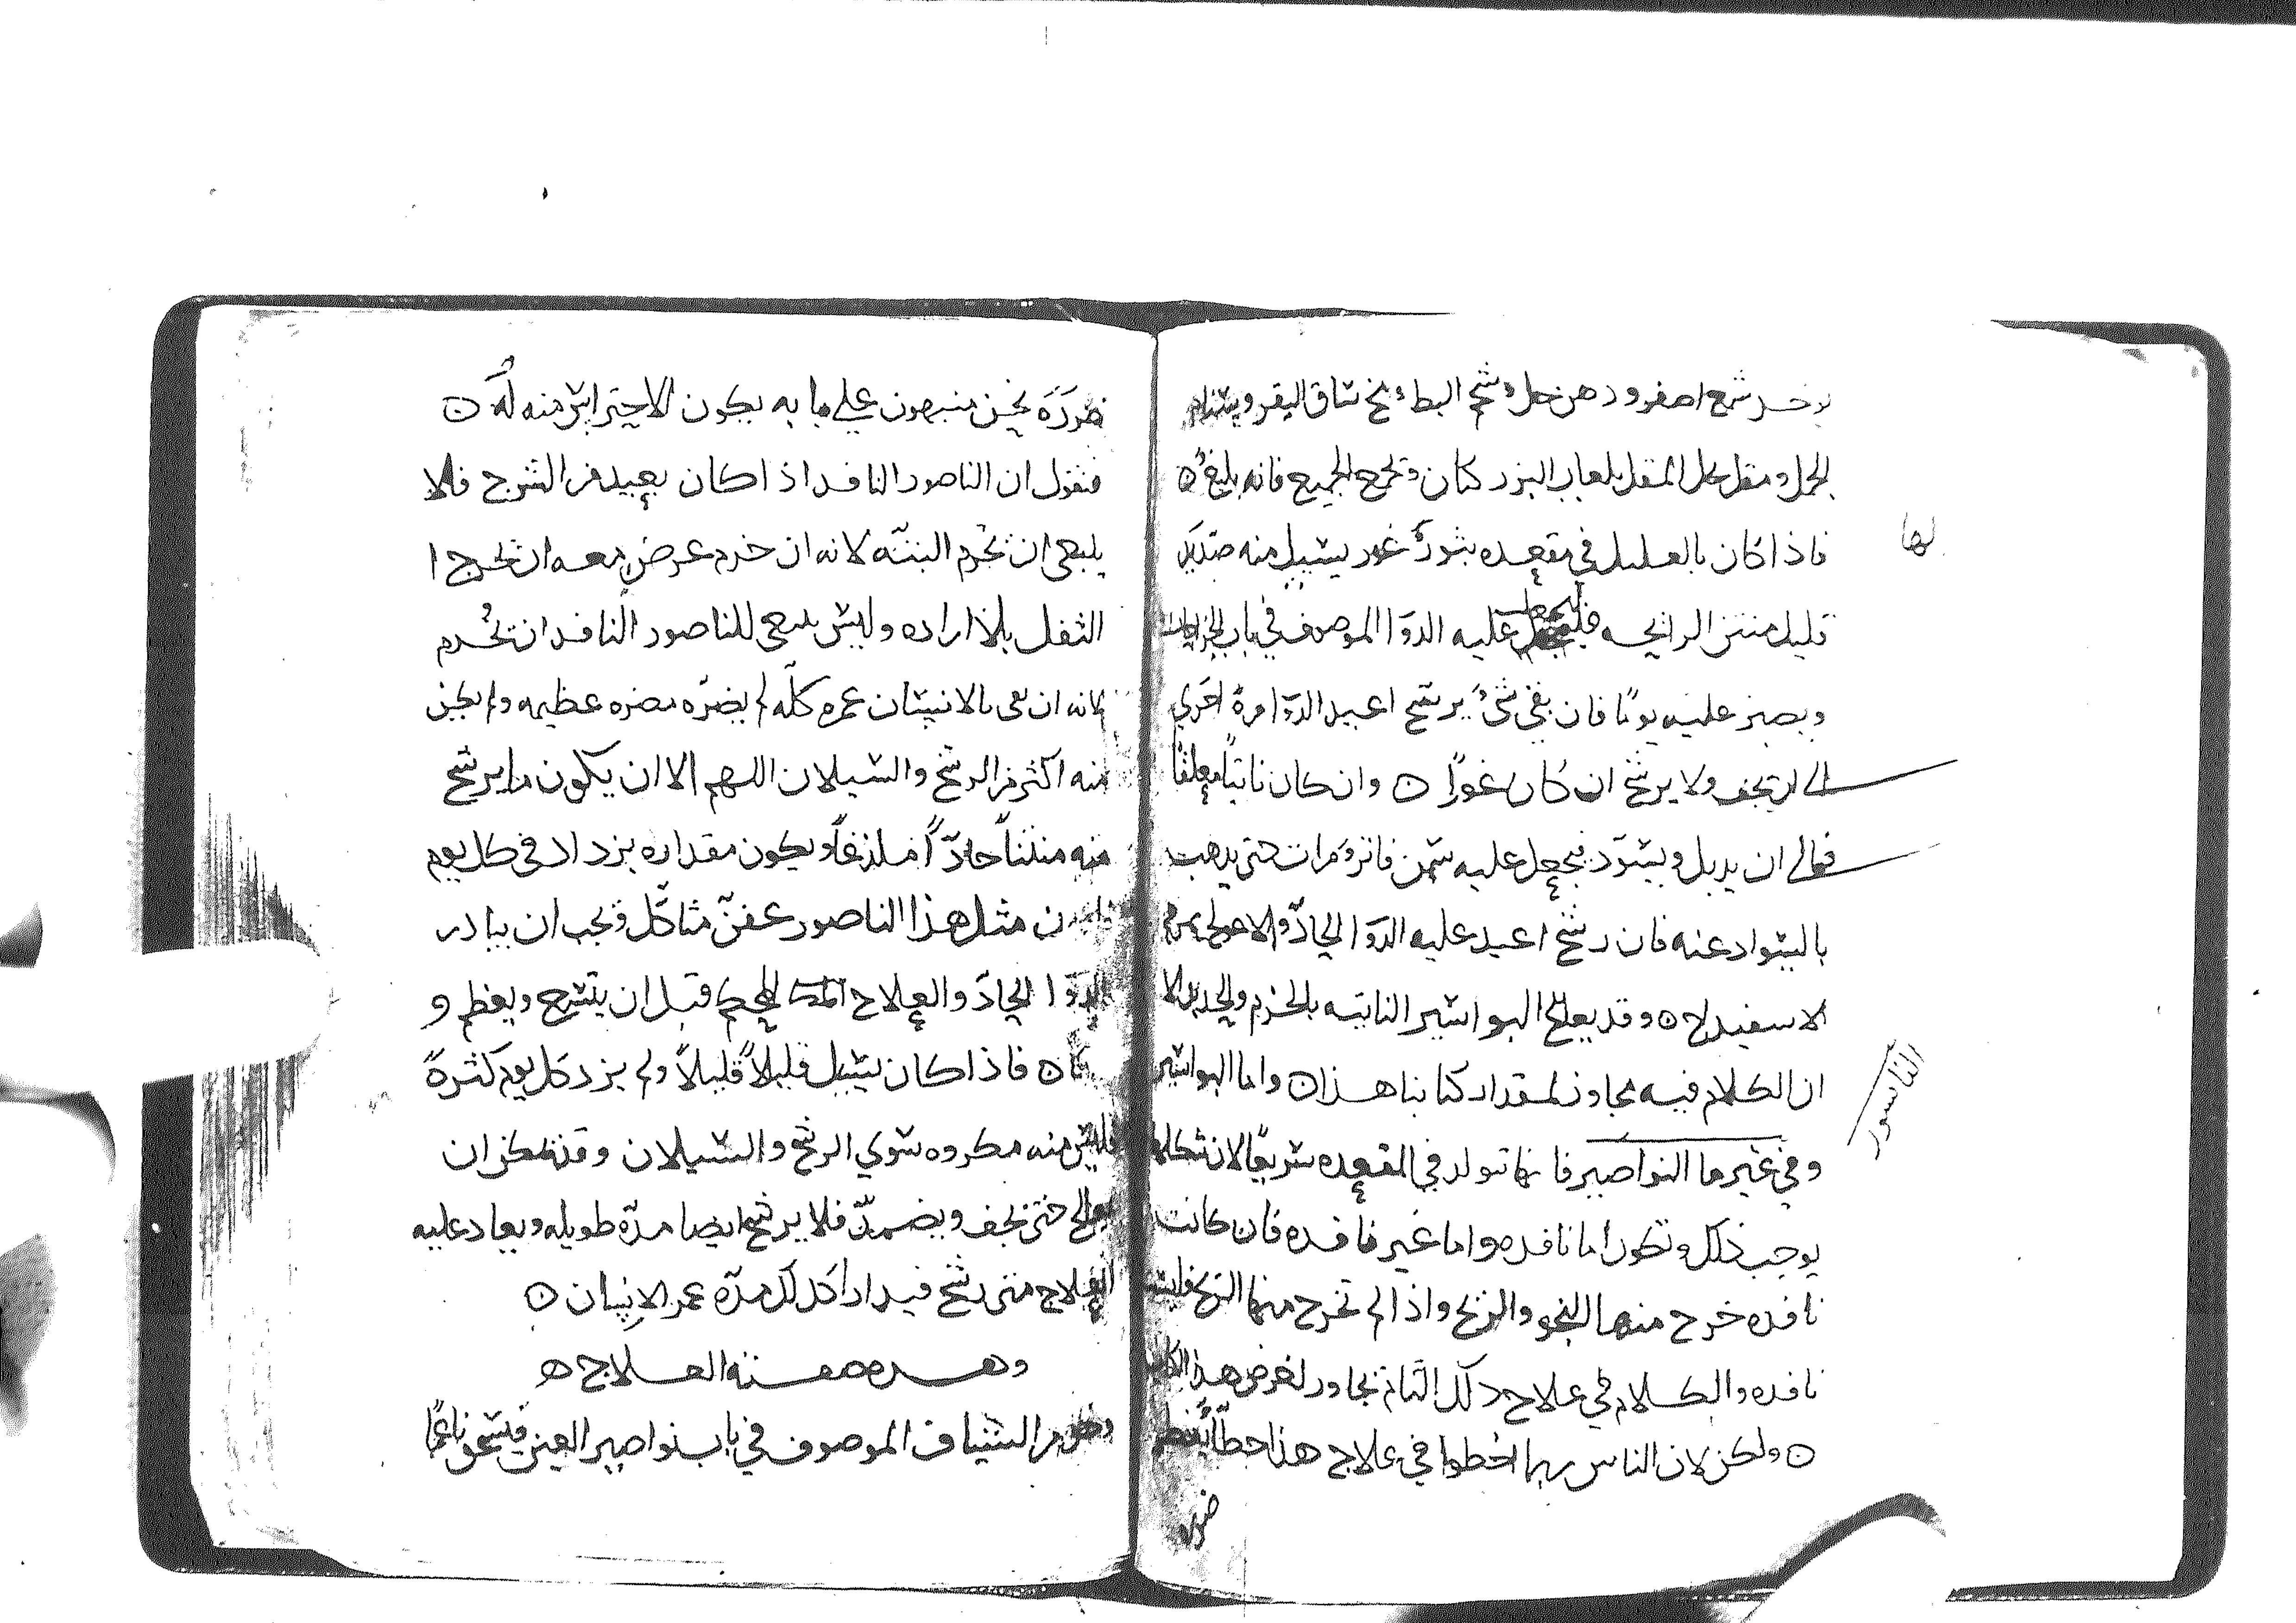 يوخذ شمع اصفر ودهن خل وشحم البط ومخ ساق البقر وسنام
الجمل ومقل يحل المقل بلعاب البزر كتان وتجمع الجميع فانه بليغ ٥
فاذا كان بالعليل في مقعده بثور غور يسيل منه صديد
لها
قليل منتن الرايحه فليجعل عليه الدوا الموصوف في باب الجراحات
ويصبر عليه يومًا فان بقي شيء يرشح اعيد الدوا مرة اخري
الي ان يجف ولا يرشح ان كان غورًا ٥ وان كان ناتيًا معلقًا
فالي ان يدبل ويسود فيجعل عليه سمن فاتر مرات حتى يذهب
بالسواد عنه فان رشح اعيد عليه الدوا الحاد والا عولج بمرهم
الاسفيداج ٥ وقد يعالج البواسير الناتيه بالخزم والحديد الا
ان الكلام فيه مجاوز لمقدار كتابنا هذا ٥ واما البواسير
الناسور
وفي غيرها النواصير فانها تتولد في المقعده سريعًا لان شكلها
يوجب ذلك وتكون اما نافده واما غير نافده فان كانت
نافده خرج منها النجو والريح واذا لم تخرج منها الريح فليست
نافده والكلام في علاج ذلك التام تجاوز لغرض هذا الكتاب
٥ ولكن لان الناس ربما اخطوا في علاج هذا خطأ يعظم
ضرره
ضرره نحن منبهون علي ما به يكون الاحتراس منه له ٥
فنقول ان الناصور النافد اذا كان بعيد من الشرج فلا
ينبغي ان تخرم البته لانه ان خرم عرض معه ان تخرج ا
الثفل بلا اراده وليس ينبغي للناصور النافد ان تخرم
لانه ان بقي بالانسان عمره كله لم يضره مضره عظيمه ولم يكن
منه اكثر من الرشح والسيلان اللهم الا ان يكون ما يرشح
منه منتنًا حادًا ملذعًا ويكون مقداره يزداد في كل يوم
فان مثل هذا الناصور عفن متاكل ويجب ان يبادر
الدوا الحاد والعلاج المحكم قبل ان يتسع ويعظم و
فاذا كان يسيل قليلًا قليلًا ولم يزد كل يوم كثرة
فليس منه مكروه سوي الرشح والسيلان وقد يمكن ان
يعالج حتى يجف ويضمد فلا يرشح ايضا مدة طويله ويعاد عليه
العلاج متى رشح فيدارا كذلك مدة عمر الانسان ٥
وهذه صفة العلاج ٥
الشياف الموصوف في باب نواصير العين فيسحق ناعمًا